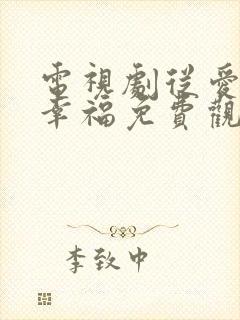 電視劇從愛
幸福免費觀
李致中